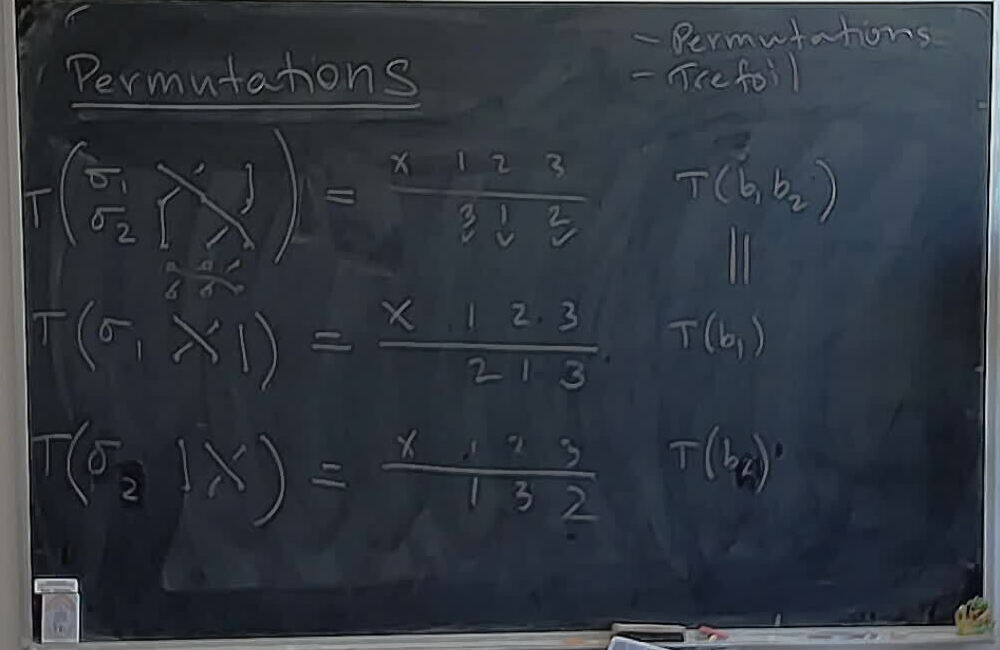 - Permutations
- Trefoil
Permutations
T(σ₁ σ₂) = x 1 2 3
3 1 2
T(b₁b₂)
||
T(σ₁ |) = x 1 2 3
2 1 3
T(b₁)
T(σ₂ |) = x 1 2 3
1 3 2
T(b₂)